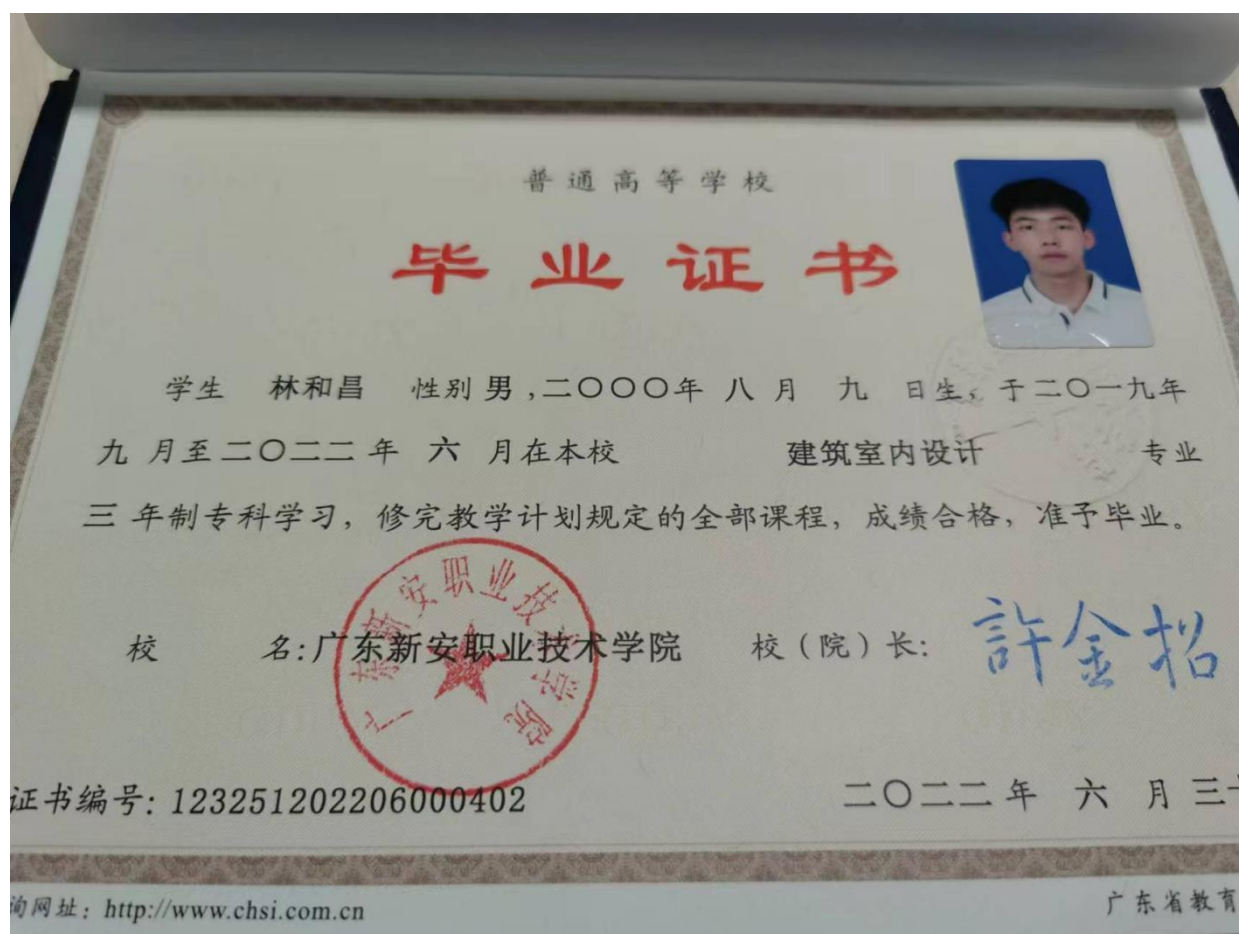 普通高等学校
毕业证书
学生 林和昌 性别 男 ,二〇〇〇年 八 月 九 日生, 于二〇一九年
九 月至二〇二二 年 六 月在本校 建筑室内设计 专业
三 年制专科学习, 修完教学计划规定的全部课程, 成绩合格, 准予毕业。
广东新安职业技术学院
校 名:广东新安职业技术学院 校(院)长: 許金招
证书编号: 123251202206000402 二〇二二 年 六 月 三十
询网址: http://www.chsi.com.cn 广东省教育